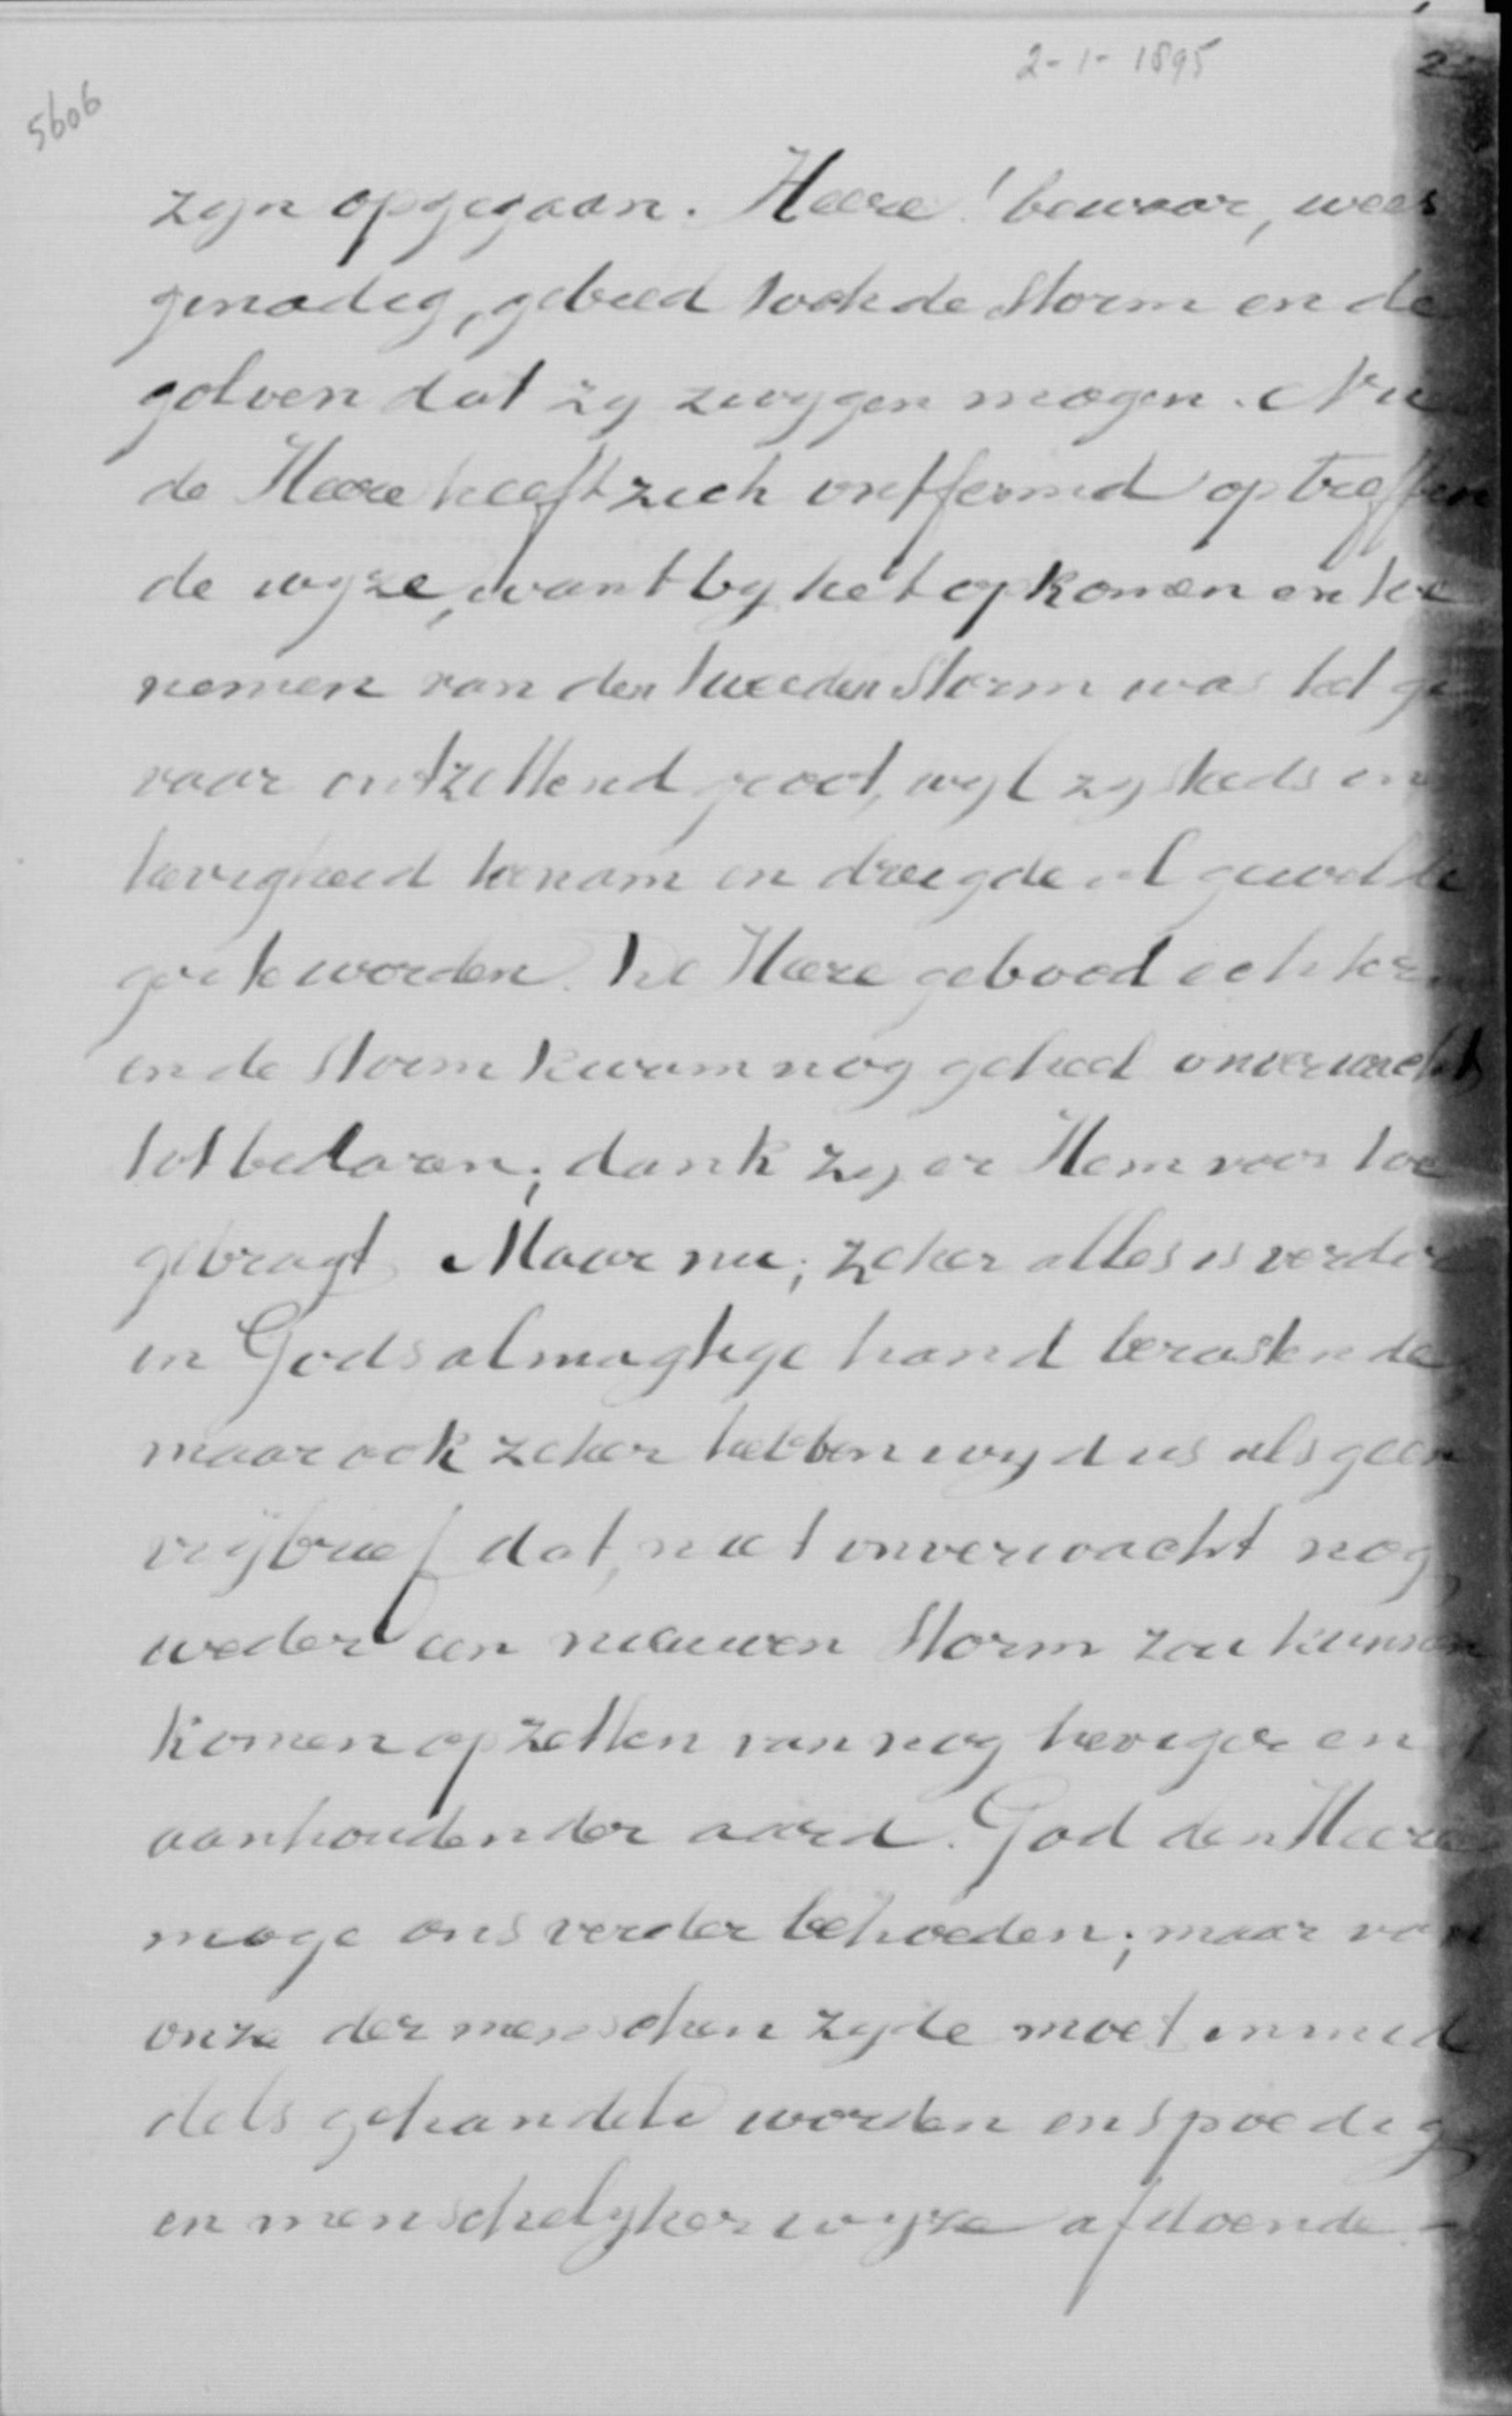 2-1-1895
2
5606
zyn opgegaan. Heere! bewaar, wees
genadig, gebied toch de storm en de
golven dat zy zwygen mogen. Nu
de Heere heeft zich ontfermd op treffen
de wyze, want by het opkomen en toe
nemen van den tweeden storm was het ge
vaar ontzettend groot, wyl zy steeds in
hevigheid toenam en dreigde al gewelde
ger te worden. De Heere gebood echter
en de storm kwam nog geheel onverwacht
tot bedaren; dank zy er Hem voor toe
gebragt. Maar nu; zeker alles is verder
in Gods almagtige hand berustende
maar ook zeker hebben wy dus als geen
vrijbrief dat, niet onverwacht nog
weder een nieuwen storm zou kunnen
komen opzetten van nog heviger en
aanhoudender aard. God den Heere
moge ons verder behoeden; maar van
onze der menschen zyde moet inmid
dels gehandeld worden en spoedig
en menschelykerwyze afdoende -